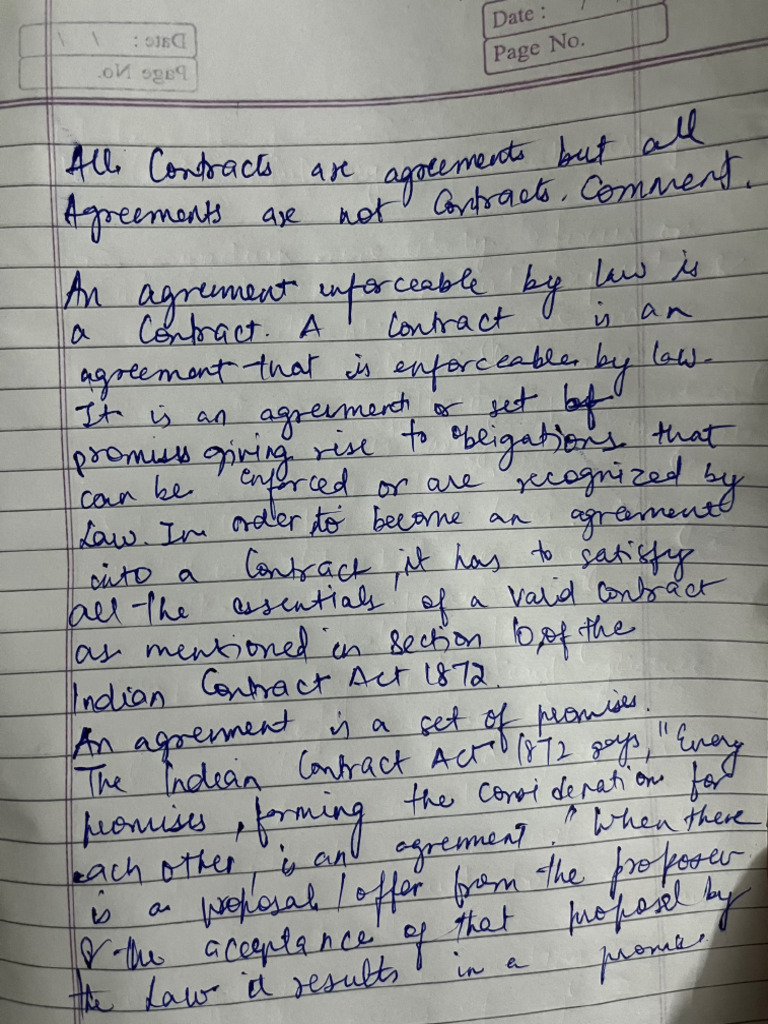 Date : / /
Page No.
Date : /
Page No.
All Contracts are agreements but all
Agreements are not Contracts. Comment.
An agreement enforceable by law is
a Contract. A Contract is an
agreement that is enforceable by law.
It is an agreement or set of
promises giving rise to obligations that
can be enforced or are recognized by
Law. In order, to become an agreement
into a Contract, it has to satisfy
all the essentials of a valid contract
as mentioned in Section 10, of the
Indian Contract Act 1872.
An agreement is a set of promises.
The Indian Contract Act 1872 says, "Every
promises, forming the consideration for
each other, is an agreement." When there
is a proposal / offer from the proposer
& the acceptance of that proposal by
the Law it results in a promise.